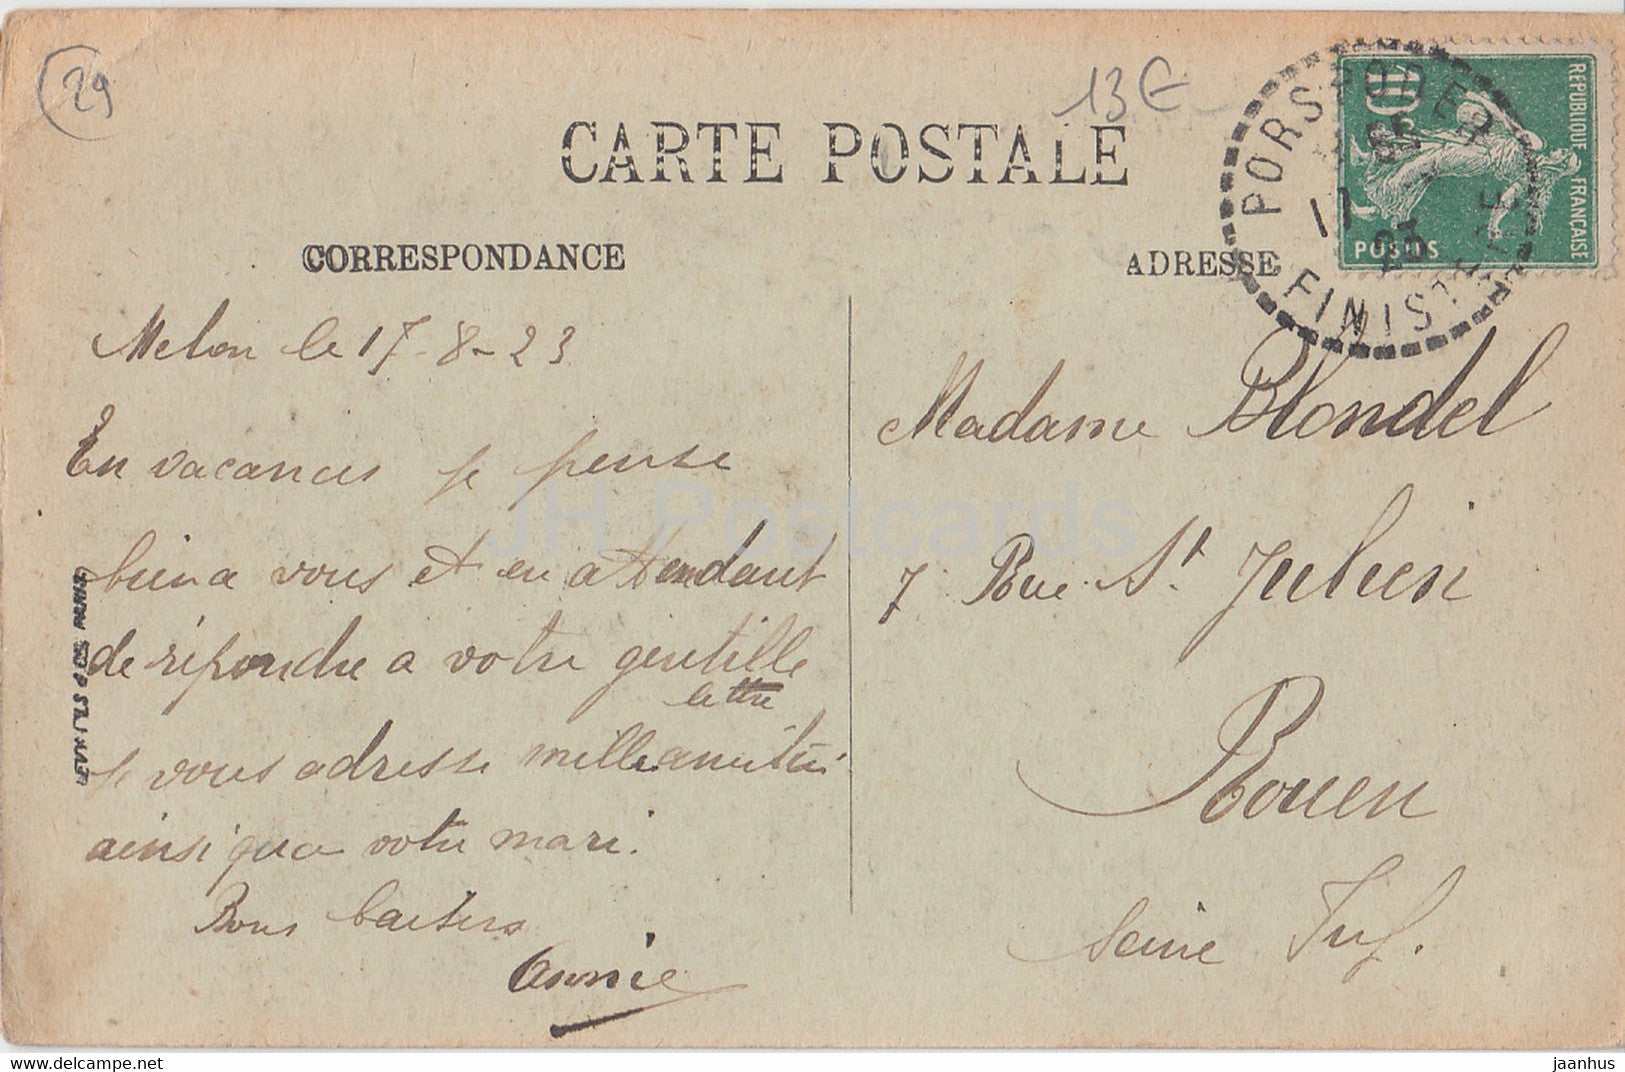 29
13 €
CARTE POSTALE
CORRESPONDANCE
ADRESSE
REPUBLIQUE FRANÇAISE
10
POSTES
PORSPODER
17
23
FINISTERE
Melon le 17-8-23
En vacances je pense
bien a vous et en attendant
de répondre a votre gentille
lettre
je vous adresse mille amitiés
ainsi qu'a votre mari.
Bons baisers
Annie
Madame Blondel
7 Rue St Julien
Rouen
Seine Inf.
JH Postcards
www.delcampe.net
jaanhus